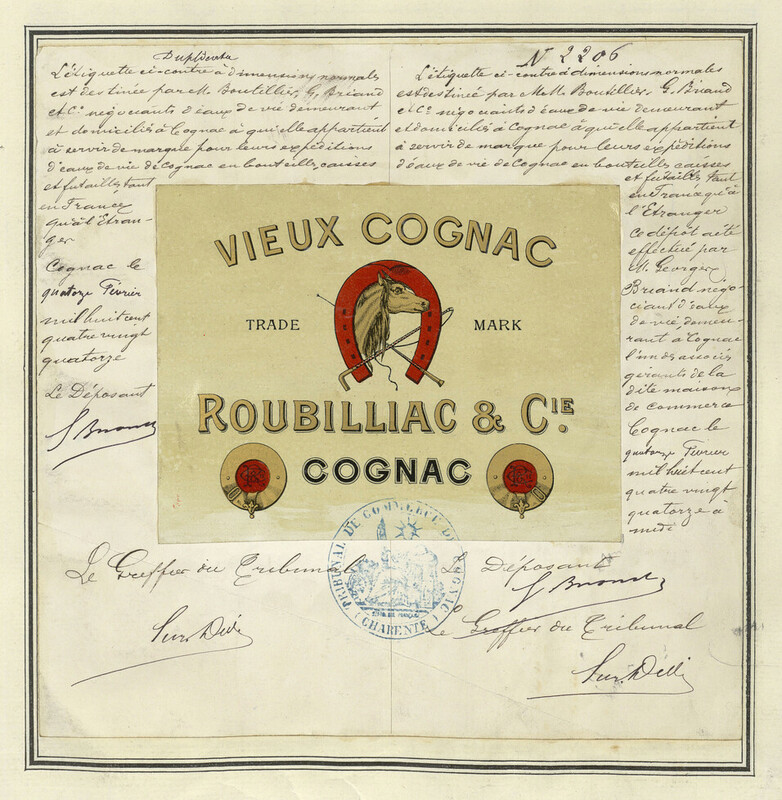 Duplicata
L'étiquette ci-contre à dimensions normales
est destinée par M. Boutillier, G. Briand
et Cie négociants d'eaux de vie demeurant
et domiciliés à Cognac à qui elle appartient
à servir de marque pour leurs expéditions
d'eaux de vie de Cognac en bouteilles, caisses
et futailles tant
en France
qu'à l'Etran-
ger
Cognac le
quatorze Février
mil huit cent
quatre vingt
quatorze
Le Déposant
N 2206
L'étiquette ci-contre à dimensions normales
est destinée par MM. Boutillier, G. Briand
et Cie négociants d'eaux de vie demeurant
et domiciliés à Cognac à qui elle appartient
à servir de marque pour leurs expéditions
d'eaux de vie de Cognac en bouteilles caisses
et futailles tant
en France qu'à
l'Etranger
Ce dépôt a été
effectué par
M. Georges
Briand négo-
ciant d'eaux
de vie demeu-
rant à Cognac
l'un des associés
gérants de la
dite maison
de commerce
Cognac le
quatorze Février
mil huit cent
quatre vingt
quatorze à
midi
VIEUX COGNAC
TRADE MARK
ROUBILLIAC & CIE.
COGNAC
TRIBUNAL DE COMMERCE DE COGNAC
(CHARENTE)
Le Greffier du Tribunal
Le Déposant
Le Greffier du Tribunal